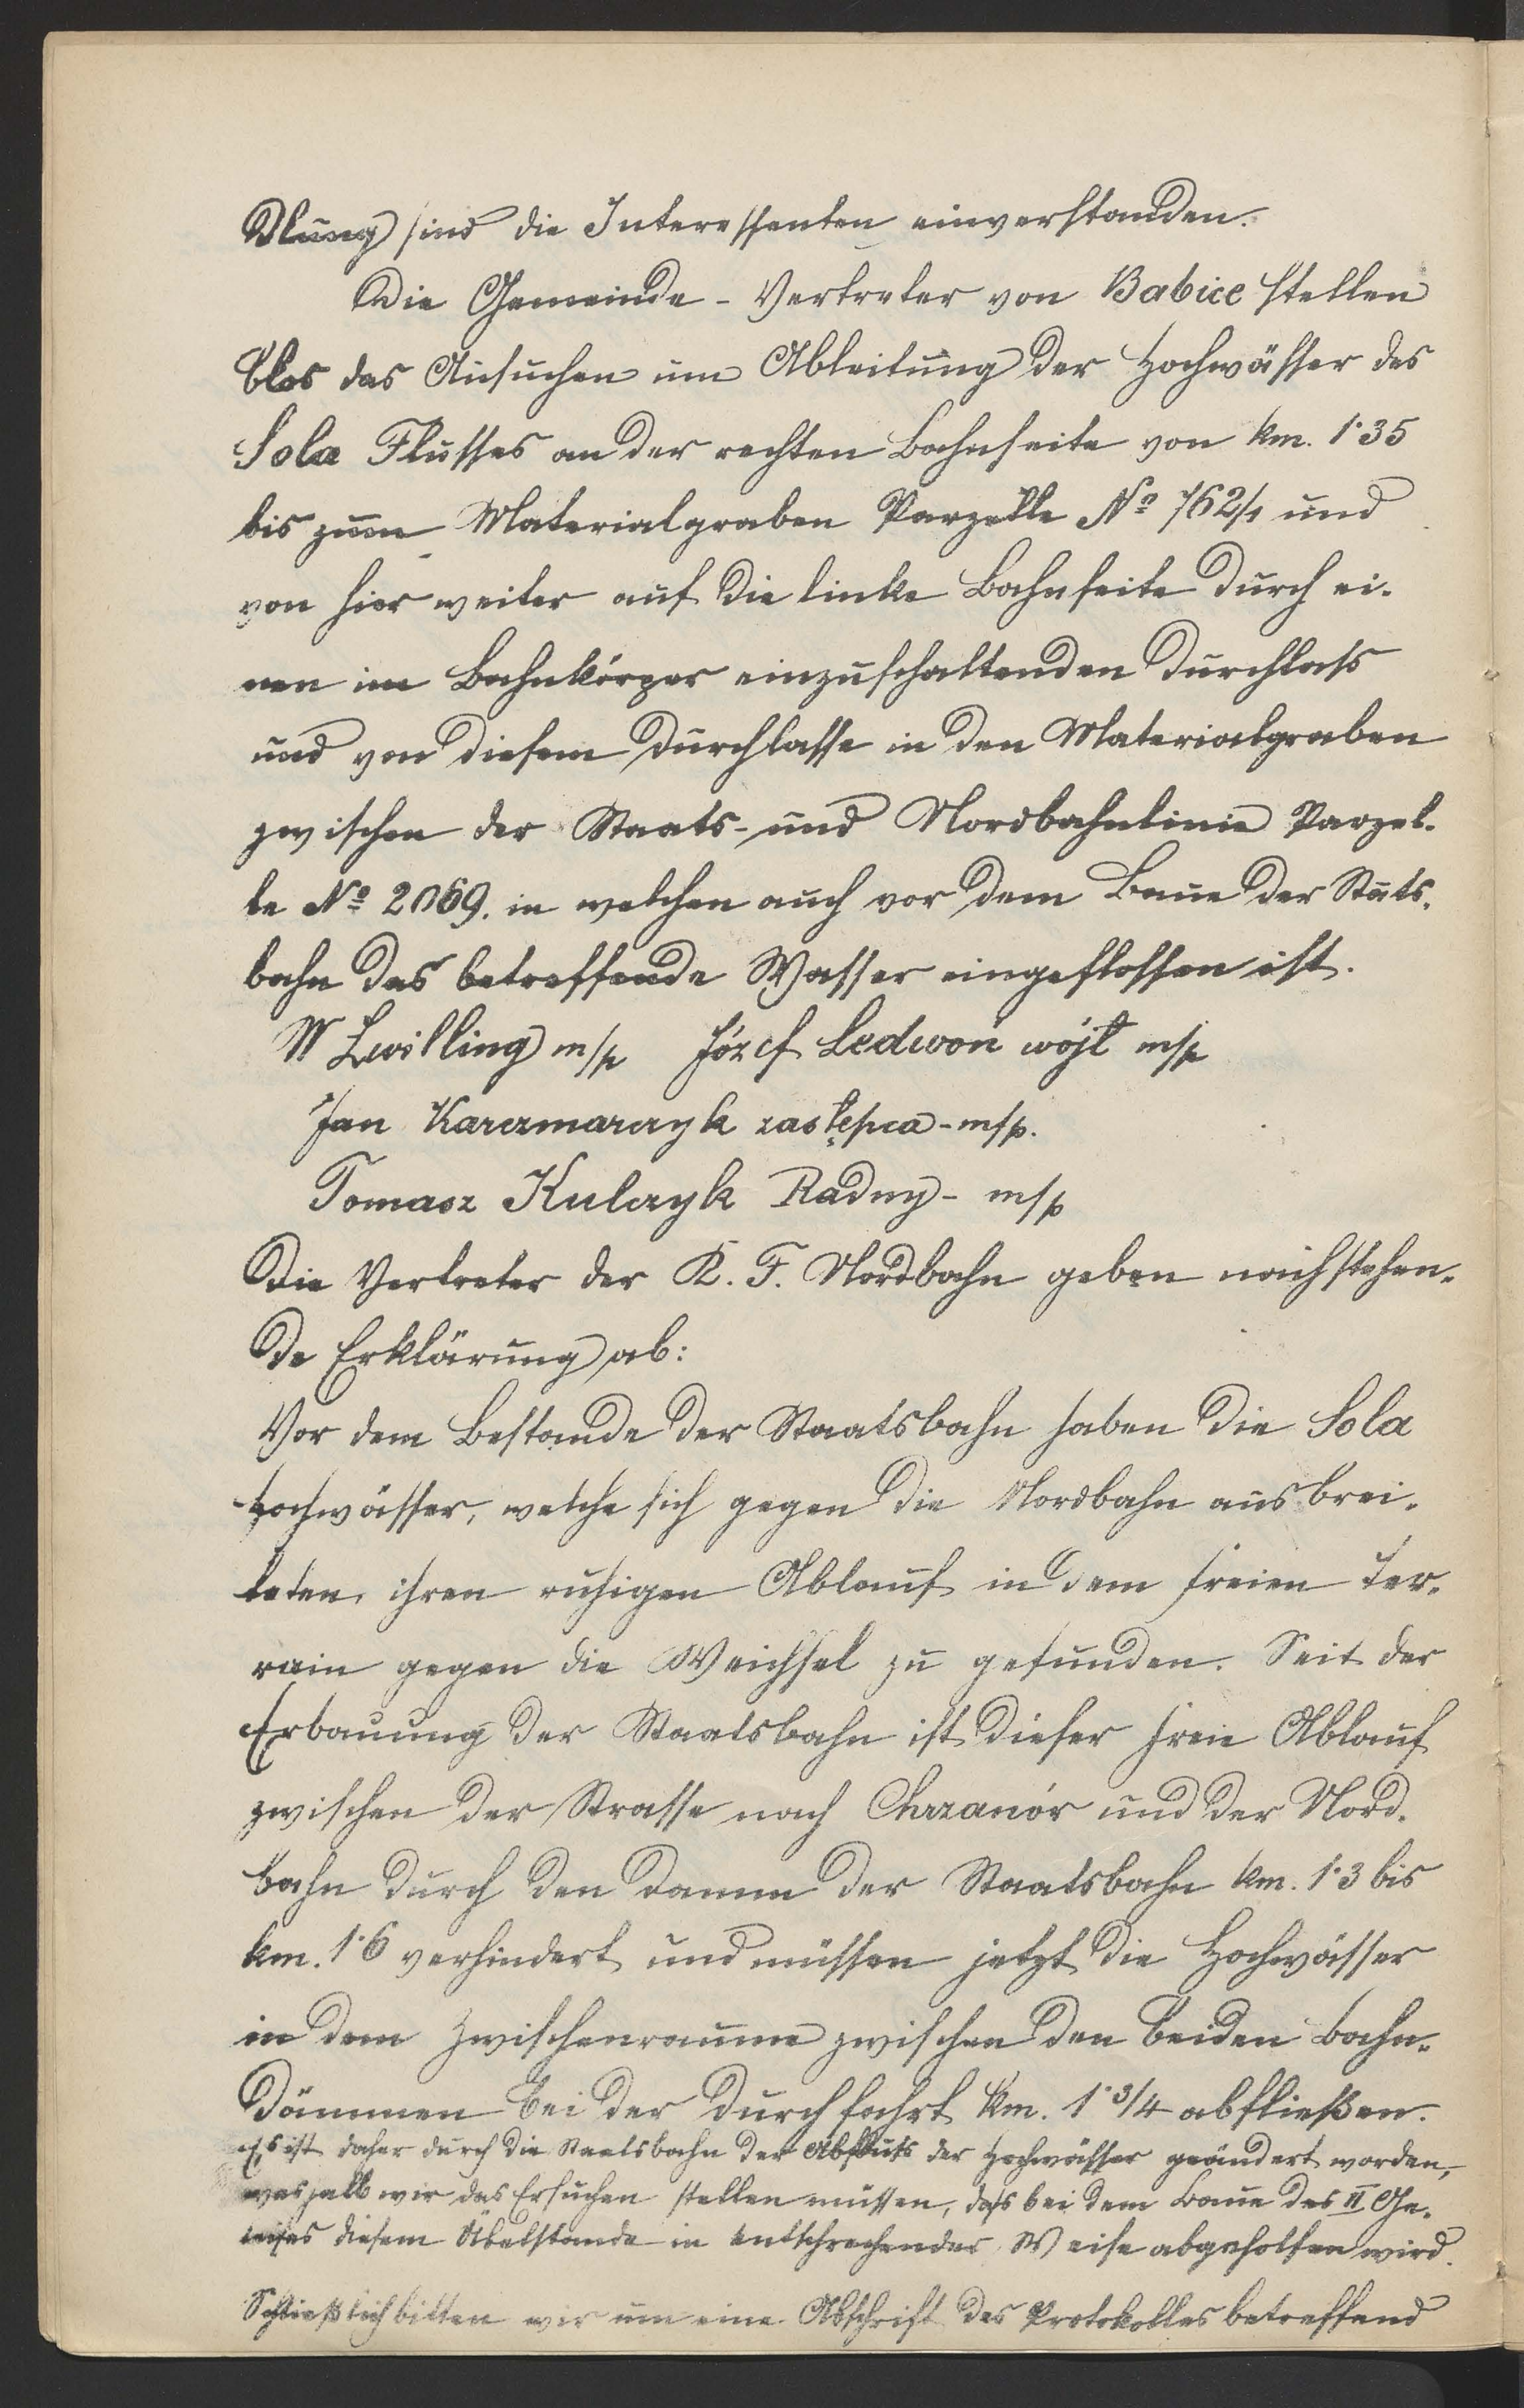 dlung sind die Interessenten einverstanden.
Die Gemeinde-Vertreter von Babice stellen
blos das Ansuchen um Ableitung der Hochwässer des
Sola Flusses an der rechten Bahnseite von km. 1·35
bis zum Materialgraben Parzelle No 762/1 und
von hier weiter auf die linke Bahnseite durch ei-
nen im Bahnkörper einzuschaltenden Durchlass
und von diesem Durchlasse in den Materialgraben
zwischen der Staats- und Nordbahnlinie Parzel-
le No 2069. in welchen auch vor dem Baue der Stats-
bahn das betreffende Wasser eingeflossen ist.
W Zwilling m/p Józef Ledwoń wójt m/p
Jan Karczmarczyk zastępca - m/p.
Tomasz Kulczyk Radny - m/p
Die Vertreter der K. F. Nordbahn geben nachstehen-
de Erklärung ab:
Vor dem Bestande der Staatsbahn haben die Sola
Hochwässer, welche sich gegen die Nordbahn ausbrei-
teten, ihren ruhigen Ablauf in dem freien Ter-
rain gegen die Weichsel zu gefunden. Seit der
Erbauung der Staatsbahn ist dieser freie Ablauf
zwischen der Strasse nach Chrzanór und der Nord-
bahn durch den Damm der Staatsbahn km. 1·3 bis
km. 1·6 verhindert und müssen jetzt die Hochwässer
in dem Zwischenraume zwischen den beiden Bahn-
dämmen bei der Durchfahrt km. 1·3/4 abfließen.
Es ist daher durch die Staatsbahn der Abfluss der Hochwässer geändert worden,
weshalb wir das Ersuchen stellen müssen, dass bei dem Baue des II Ge-
leises diesem Übelstande in entsprechender Weise abgeholfen wird.
Schließlich bitten wir um eine Abschrift des Protokolles betreffend